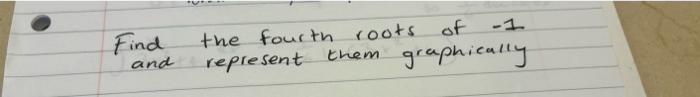 Find the fourth roots of -1
and represent them graphically